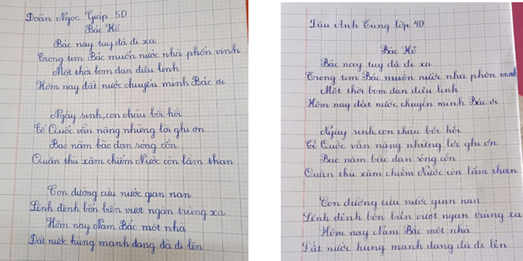 Đoàn Ngọc Giáp 5D
Bác Hồ
Bác nay tuy đã đi xa
Trong tim Bác muốn nước nhà phồn vinh
Một thời bom đạn điêu linh
Hôm nay đất nước chuyển mình Bác ơi
Ngày sinh, con cháu bồi hồi
Tổ Quốc vẫn nặng những lời ghi ơn
Bao năm bão đạn sống còn
Quân thù xâm chiếm Nước còn lầm than
Con đường cứu nước gian nan
Lênh đênh bốn biển vượt ngàn trùng xa
Hôm nay Nam Bắc một nhà
Đất nước hùng mạnh đang đà đi lên
Dâu Anh Tung lớp 4D
Bác Hồ
Bác nay tuy đã đi xa
Trong tim Bác muốn nước nhà phồn vinh
Một thời bom đạn điêu linh
Hôm nay đất nước chuyển mình Bác ơi
Ngày sinh, con cháu bồi hồi
Tổ Quốc vẫn nặng những lời ghi ơn
Bao năm bão đạn sống còn
Quân thù xâm chiếm Nước còn lầm than
Con đường cứu nước gian nan
Lênh đênh bốn biển vượt ngàn trùng xa
Hôm nay Nam Bắc một nhà
Đất nước hùng mạnh đang đà đi lên